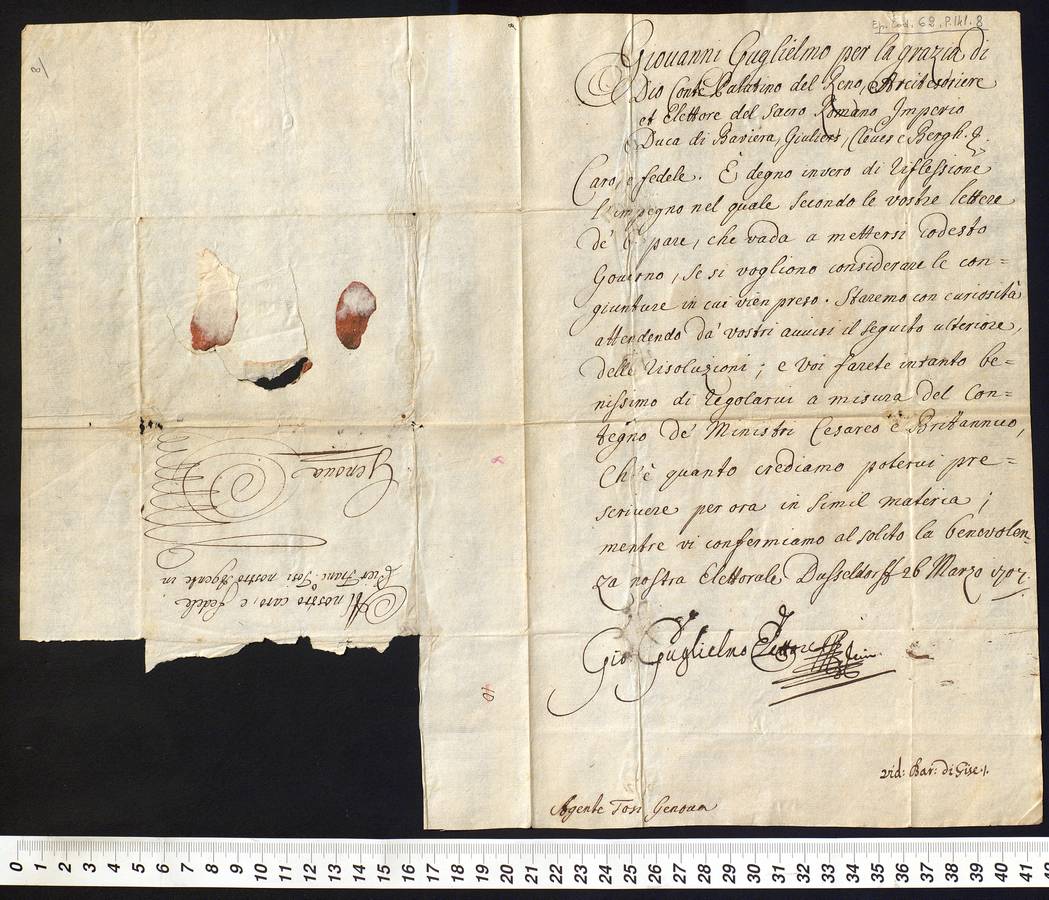 Ep. Cod. 62. P. 141. 8
Giovanni Guglielmo per la grazia di
Dio Conte Palatino del Reno, Arcitesoriere
et Elettore del Sacro Romano Imperio
Duca di Baviera, Giuliers, Cleves e Bergh. &.
Caro, e fedele. È degno invero di riflessione
l'impegno nel quale secondo le vostre lettere
de' 6 pare, che vada a mettersi codesto
Governo, se si vogliono considerare le con=
giunture in cui vien preso. Staremo con curiosità
attendendo da' vostri avvisi il seguito ulteriore,
delle risoluzioni; e voi farete intanto be=
nissimo di regolarvi a misura del Con=
tegno de' Ministri Cesareo e Britannico,
Ch'è quanto crediamo potervi pre=
scrivere per ora in simil materia;
mentre vi confermiamo al solito la benevolen
za nostra Elettorale Dusseldorff 26 Marzo 1707.
Gio Guglielmo Elettore
vid: Bar: di Gise
Agente Tosi Genova
Al nostro caro, e fedele
Pier Franc. Tosi nostro Agente in
Genova
8
10
0 1 2 3 4 5 6 7 8 9 10 11 12 13 14 15 16 17 18 19 20 21 22 23 24 25 26 27 28 29 30 31 32 33 34 35 36 37 38 39 40 41 42